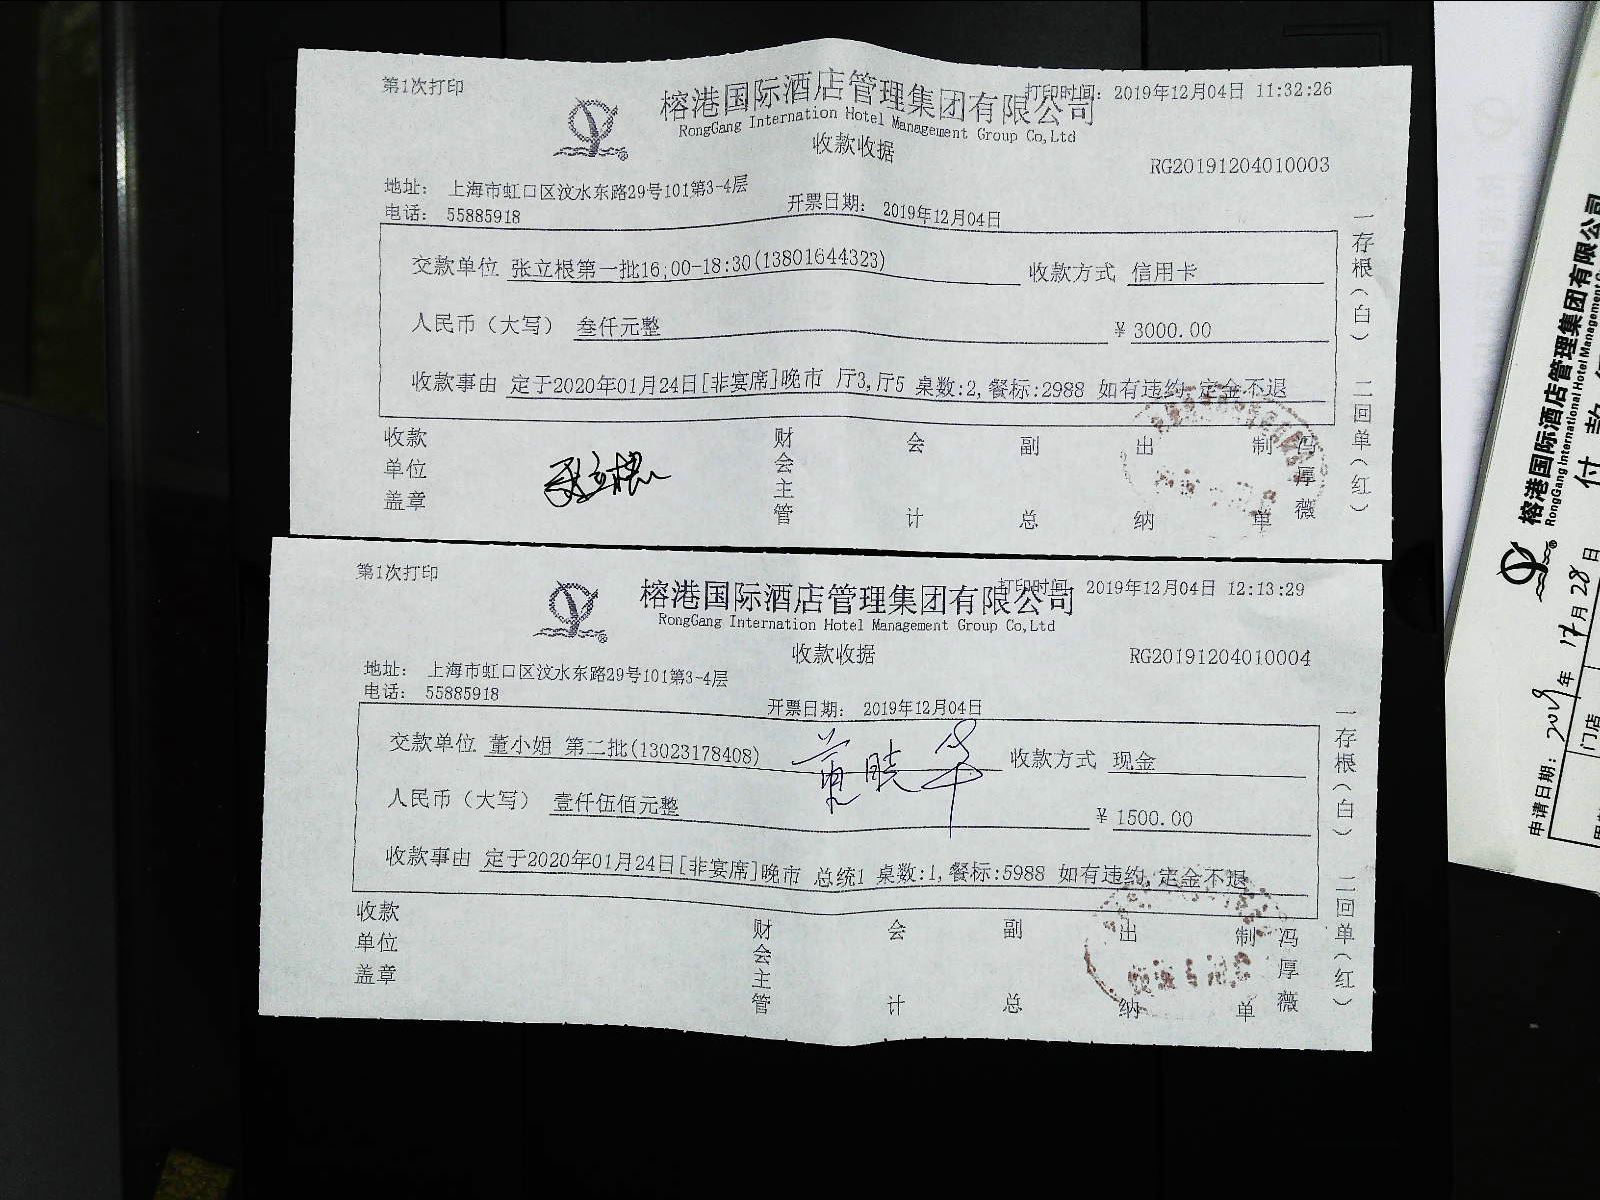 第1次打印
打印时间: 2019年12月04日 11:32:26
榕港国际酒店管理集团有限公司
RongGang Internation Hotel Management Group Co,Ltd
收款收据
RG20191204010003
地址: 上海市虹口区汶水东路29号101第3-4层
电话: 55885918
开票日期: 2019年12月04日
交款单位 张立根第一批16;00-18:30(13801644323) 收款方式 信用卡
人民币(大写) 叁仟元整 ¥ 3000.00
收款事由 定于2020年01月24日[非宴席]晚市 厅3,厅5 桌数:2,餐标:2988 如有违约,定金不退
收款单位盖章 张立根 财会主管 会计 副总 出纳 制单 冯厚薇
一存根(白) 二回单(红)
第1次打印
打印时间: 2019年12月04日 12:13:29
榕港国际酒店管理集团有限公司
RongGang Internation Hotel Management Group Co,Ltd
收款收据
RG20191204010004
地址: 上海市虹口区汶水东路29号101第3-4层
电话: 55885918
开票日期: 2019年12月04日
交款单位 董小姐 第二批(13023178408) 董晓华 收款方式 现金
人民币(大写) 壹仟伍佰元整 ¥ 1500.00
收款事由 定于2020年01月24日[非宴席]晚市 总统1 桌数:1,餐标:5988 如有违约,定金不退
收款单位盖章 财会主管 会计 副总 出纳 制单 冯厚薇
一存根(白) 二回单(红)
榕港国际酒店管理集团有限公司
RongGang International Hotel Management
付 款
申请日期: 2019年12月28日
门店